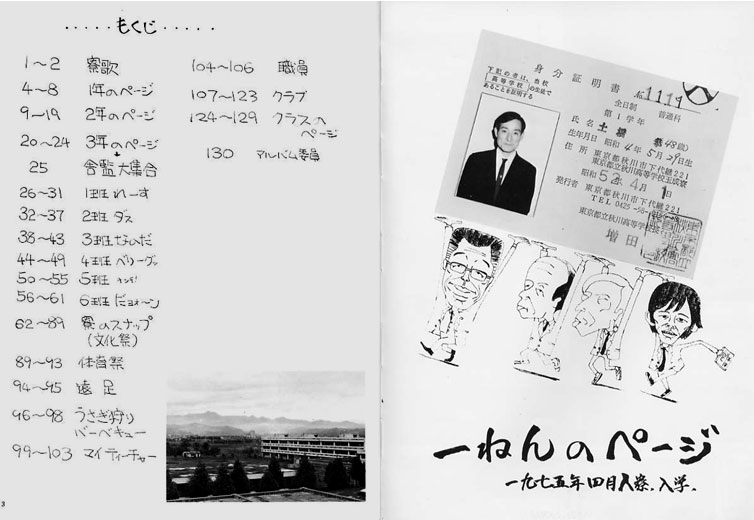 ・・・・・もくじ・・・・・
1〜2 寮歌
4〜8 1年のページ
9〜19 2年のページ
20〜24 3年のページ
25 舎監大集合
26〜31 1班 れーす
32〜37 2班 ダス
38〜43 3班なのだ
44〜49 4班 ベリーグッ
50〜55 5班
56〜61 6班 だョォーン
62〜89 寮のスナップ
(文化祭)
89〜93 体育祭
94〜95 遠足
96〜98 うさぎ狩り
バーベキュー
99〜103 マイティーチャー
104〜106 職員
107〜123 クラブ
124〜129 クラスの
ページ
130 アルバム委員
3
身分証明書
1119
下記の者は、当校
高等学校の生徒で
あることを証明する
全日制 普通科
第1学年
氏名 土
生年月日 昭和 4年5月29日生
住所 東京都秋川市下代継221
東京都立秋川高等学校玉成寮
昭和52年4月1日
発行者 東京都秋川市下代継221
TEL 0425-58-
東京都立秋川高等学校長
増田
一ねんのページ
一九七五年四月入寮、入学、